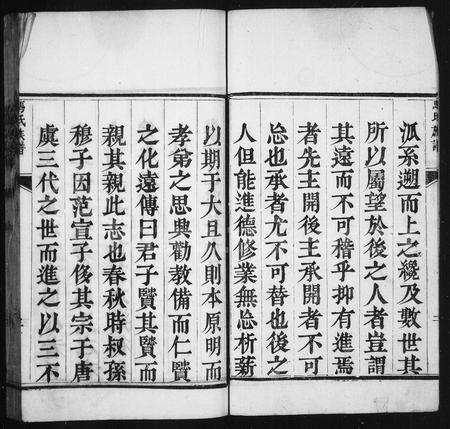 泒系遡而上之纔及數世其
所以屬望於後之人者豈謂
其遠而不可稽乎抑有進焉
者先主開後主承開者不可
忘也承者尤不可替也後之
人但能進德修業無忘析薪
以期于大且久則本原明而
孝弟之思典勸教備而仁賢
之化遠傳曰君子賢其賢而
親其親此志也春秋時叔孫
穆子因范宣子侈其宗于唐
虞三代之世而進之以三不
馬氏族譜